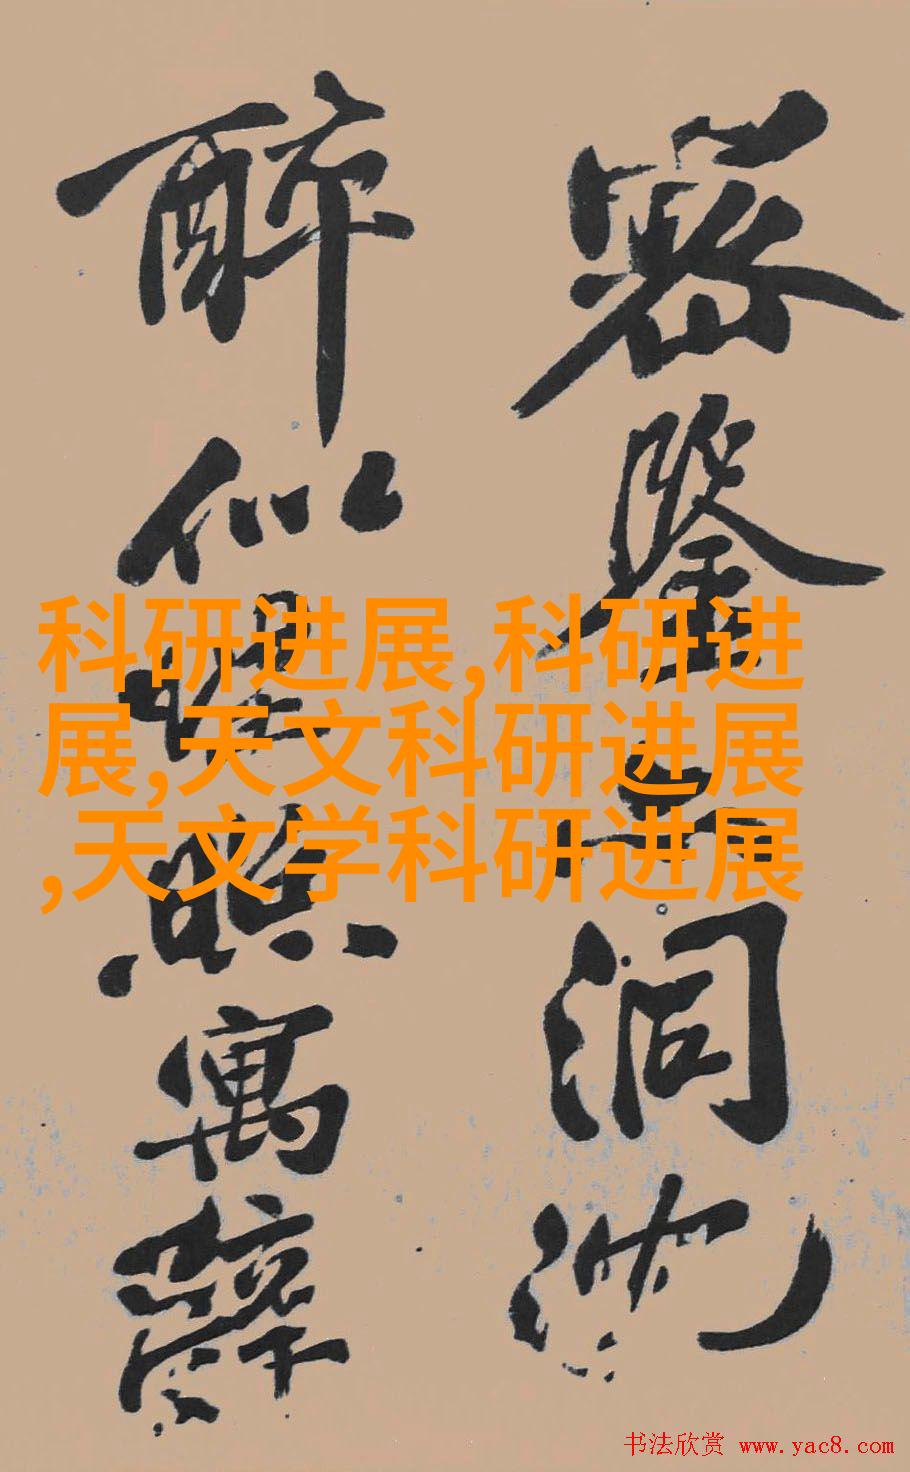 密鑒
洞
醉似
照寓辭
科研进展,科研进
展,天文科研进展
,天文学科研进展
书法欣赏 www.yac8.com